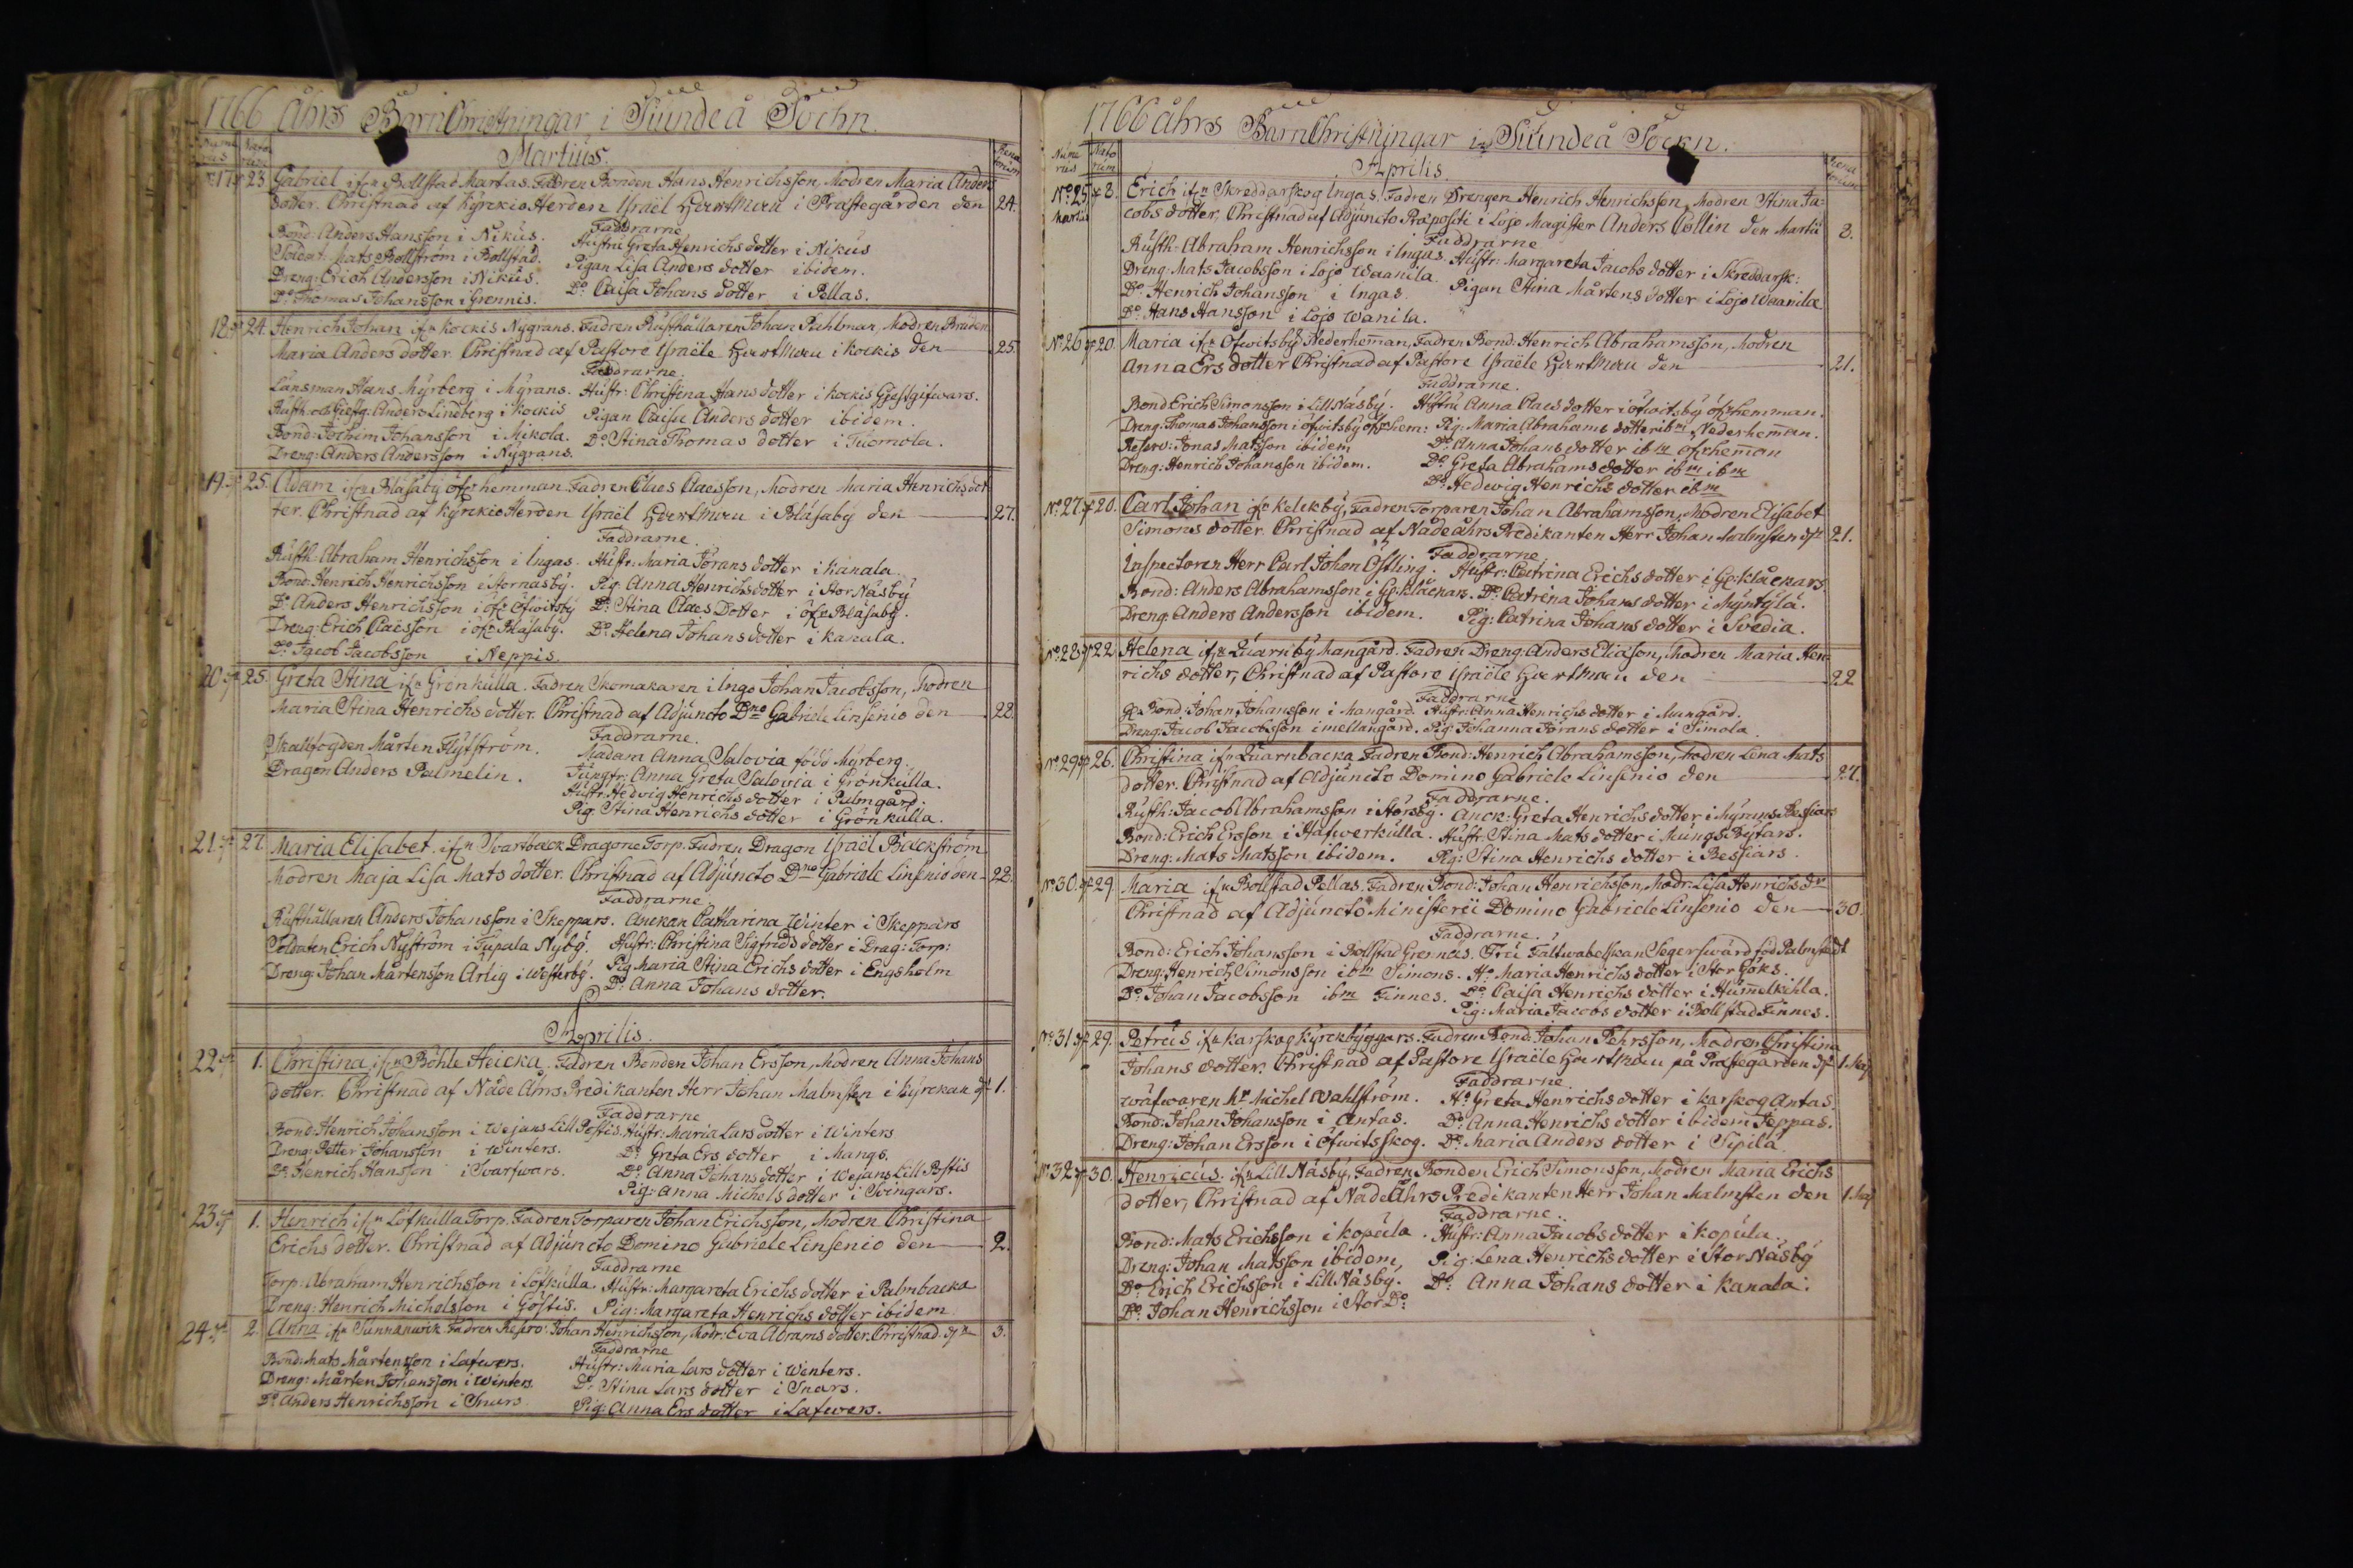 1766 åhrs BarnChristningar i Siündeå Sochn.
Nume rus Nato rum Martius. Rena torum
17 23 Gabriel ifrn Bollstad Martas. Fadren Bonden Hans Henrichsson, Modren Maria Anders
dotter. Christnad af KyrckioHerden Israël Hartman i Prästegården den 24.
Faddrarne
Bond: Anders Hansson i Nikus. Hustru Greta Henrichs dotter i Nikus
Soldat: Mats Bollström i Bollstad. Pigan Lisa Anders dotter ibidem.
Dreng: Erich Andersson i Nikus. Do Caisa Johans dotter i Pellas.
Do Thomas Johansson i Grennis.
18 24. Henrich Johan ifrn Kockis Nygrans. Fadren Rusthållaren Johan Pahlman, Modren
Maria Anders dotter. Christnad af Pastore Israële Hartman i Kockis den 25.
Faddrarne.
Länsman Hans Myrberg i Myrans. Hustr: Christina Hans dotter i Kockis Gjestgifwars.
Rusth: och Giestg: Anders Lineberg i Kockis Pigan Caisa Anders dotter ibidem.
Bond: Jochim Johansson i Mikola. Do Stina Thomas dotter i Tuomola.
Dreng: Anders Andersson i Nygrans.
19 25. Adam ifrn Blåsaby öfr hemman. Fadren Claes Claesson, Modren Maria Henrichs dot
ter. Christnad af KyrckioHerden Israël Hartman i Blåsaby den 27.
Faddrarne.
Rusth: Abraham Henrichsson i Ingas. Hustr: Maria Jörans dotter i Kanala.
Bond: Henrich Henrichsson i Stornäsby. Pig: Anna Henrichsdotter i Stor Näsby
Do Anders Henrichsson i öfr Öfwitsby Do Stina Claes Dotter i öfr Blåsaby.
Dreng: Erich Claesson i öfr Blåsaby. Do Helena Johans dotter i Kanala.
Do Jacob Jacobsson i Neppis.
20 25. Greta Stina ifrn Grönkulla. Fadren Skomakaren i Ingo Johan Jacobsson, Modren
Maria Stina Henrichs dotter. Christnad af Adjuncto Dno Gabriele Linsenio den 28.
Faddrarne.
Skallfogden Mårten Flyström. Madam Anna Salovia född Myrberg.
Dragon Anders Palmelin. Jungfr: Anna Greta Salovia i Grönkulla.
Hustr: Hedvig Henrichs dotter i Palmgård.
Pig: Stina Henrichs dotter i Grönkulla.
21 27. Maria Elisabet. ifrn Svartback Dragone Torp. Fadren Dragon Israël Bäckström
Modren Maja Lisa Mats dotter. Christnad af Adjuncto Dno Gabriele Linsenio den 22.
Faddrarne
Rusthållaren Anders Johansson i Skeppars. Anckan Catharina Winter i Skeppars
Soldaten Erich Nyström i Tupala Nyby. Hustr: Christina Sigfrids dotter i Drag: Torp:
Dreng: Johan Mårtensson Arlig i Westerby. Pig Maria Stina Erichs dotter i Engsholm
Do Anna Johans dotter.
Aprilis.
22 1. Christina ifrn Böhle Heicka. Fadren Bonden Johan Ersson, Modren Anna Johans
dotter. Christnad af Nåde Åhrs Predikanten Herr Johan Malmsten i Kyrckan 1.
Faddrarne
Bond: Henrich Johansson i Wejans Lill Postis. Hustr: Maria Lars dotter i Winters
Dreng: Petter Johansson i Winters. Do Greta Ers dotter i Mangs.
Do Henrich Hansson i Svarfwars. Do Anna Johans dotter i Wejans Lill Postis
Pig: Anna Michels dotter i Svingars.
23 1. Henrich ifrn Löfkulla Torp. Fadren Torparen Johan Erichsson, Modren Christina
Erichs dotter. Christnad af Adjuncto Domino Gabriele Linsenio den 2.
Faddrarne
Torp: Abraham Henrichsson i Löfkulla. Hustr: Margareta Erichs dotter i Palmbacka
Dreng: Henrich Michelsson i Göstis. Pig: Margareta Henrichs dotter ibidem.
24 2. Anna ifrn Sunnanwik. Fadren Reserv: Johan Henrichsson, Modr: Eva Abrams dotter. Christnad 3.
Faddrarne
Bond: Mats Mårtensson i Lafwers. Hustr: Maria Lars dotter i Winters.
Dreng: Mårten Johansson i Winters. Do Stina Lars dotter i Snars.
Do Anders Henrichsson i Snars. Pig: Anna Ers dotter i Lafwers.
1766 åhrs BarnChristningar i Siündeå Sockn.
Nume rus Nato rum Aprilis. Rena torum
No 25 8. Erich ifrn Skreddarskog Ingas. Fadren Drengen Henrich Henrichsson, Modren Stina Ja:
Martii cobs dotter, Christnad af Adjuncto Præpositi i Lojo Magister Anders Collin den Martii 8.
Faddrarne
Rusth: Abraham Henrichsson i Ingas. Hustr: Margareta Jacobs dotter i Skreddarsk:
Dreng: Mats Jacobsson i Lojo Waanila. Pigan Stina Mårtens dotter i Lojo Waanila
Do Henrich Johansson i Ingas.
Do Hans Hansson i Lojo Wanila.
No 26 20. Maria ifrn Öfwitsby Nederhemman, Fadren Bond: Henrich Abrahamsson, Modren
Anna Ers dotter Christnad af Pastore Israële Hartman den 21.
Faddrarne.
Bond Erich Simonsson i Lill Näsby. Hustru Anna Claes dotter i öfwitsby öfrhemman.
Dreng: Thomas Johansson i öfwitsby öfrhem: Pig: Maria Abrahams dotter ibm Nederhemman.
Reserv: Jonas Matsson ibidem Do Anna Johans dotter ibm öfrhemman
Dreng: Henrich Johansson ibidem. Do Greta Abrahams dotter ibm ibm
Do Hedwig Henrichs dotter ibm
No 27 20. Carl Johan ifrn Kelckby, Fadren Torparen Johan Abrahamsson, Modren Elisabet
Simons dotter. Christnad af Nåde åhrs Predikanten Herr Johan Malmsten 21.
Faddrarne.
Inspectoren Herr Carl Johan Östling. Hustr: Catrina Erichs dotter i Gp:klåckars.
Bond: Anders Abrahamsson i Gp:klåckars. Do Catrina Johans dotter i Myntylä.
Dreng: Anders Andersson ibidem. Pig: Catrina Johans dotter i Svedia.
No 28 22 Helena ifrn Quarnby Mangård. Fadren Dreng: Anders Eliason, Modren Maria Hen
richs dotter, Christnad af Pastore Israële Hartman den 22
Faddrarne
Bond: Johan Johansson i Mangård. Hustr: Anna Henrichs dotter i Mangård.
Dreng: Jacob Jacobsson i mellangård. Pig: Johanna Jörans dotter i Simola.
No 29 26. Christina ifrn Quarnbacka Fadren Bond: Henrich Abrahamsson, Modren Lena Mats
dotter. Christnad af Adjuncto Domino Gabriele Linsenio den 27.
Faddrarne.
Rusth: Jacob Abrahamsson i Störsby. Anck: Greta Henrichs dotter i Myrans Bessiars
Bond: Erich Ersson i Hafwerkulla. Hustr: Stina Mats dotter i Mungs Bytars.
Dreng: Mats Matsson ibidem. Pig: Stina Henrichs dotter i Bessiars.
No 30. 29. Maria ifrn Bollstad Pellas. Fadren Bond: Johan Henrichsson, Modr: Lisa Henrichs dr
Christnad af Adjuncto Ministerii Domino Gabriele Linsenio den 30.
Faddrarne.
Bond: Erich Johansson i Bollstad Grennäs. Fru Fältwäbelskan Segerswärd föd Palmstedt
Dreng: Henrich Simonsson ibm Simons. Ho Maria Henrichs dotter i Stor Göks.
Do Johan Jacobsson ibm Finnes. Do Caisa Henrichs dotter i Hummelkihla.
Pig: Maria Jacobs dotter i Bollstad Finnes.
No 31 29. Petrus ifrn Karskog Kyrckbyggars. Fadren Bond: Johan Pehrsson, Modren Christina
Johans dotter. Christnad af Pastore Israële Hartman på Prästegården 1 Maj
Faddrarne.
Wäfwaren Mr Michel Wahlström. Ho Greta Henrichs dotter i Karskog Antas.
Bond: Johan Johansson i Antas. Do Anna Henrichs dotter i bidem Jeppas.
Dreng: Johan Ersson i Öfwitsskog. Do Maria Anders dotter i Sipilä.
No 32 30. Henricus. ifrn Lill Näsby, Fadren Bonden Erich Simonsson, Modren Maria Erichs
dotter, Christnad af Nåde Åhrs Predikanten Herr Johan Malmsten den 1 Maj
Faddrarne.
Bond: Mats Erichsson i Kopula. Hustr: Anna Jacobs dotter i Kopula.
Dreng: Johan Matsson ibidem, Pig: Lena Henrichs dotter i Stor Näsby
Do Erich Erichsson i Lill Näsby. Do Anna Johans dotter i Kanala.
Do Johan Henrichsson i Stor Do